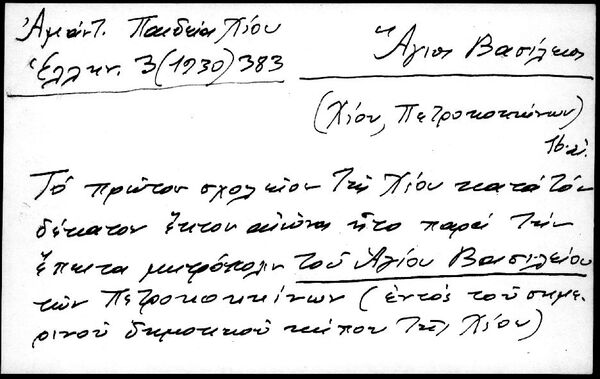 Ἀμάντ. Παιδεία Χίου
Ἑλλην. 3(1930)383
Ἅγιος Βασίλειος
(Χίου, Πετροκοκκίνων)
16 αἰ.
Τὸ πρῶτον σχολεῖον τῆς Χίου κατὰ τὸν
δέκατον ἕκτον αἰῶνα ἦτο παρὰ τὴν
ἔπειτα μητρόπολιν τοῦ Ἁγίου Βασιλείου
τῶν Πετροκοκκίνων (ἐντὸς τοῦ σημε-
ρινοῦ δημοτικοῦ κήπου τῆς Χίου)